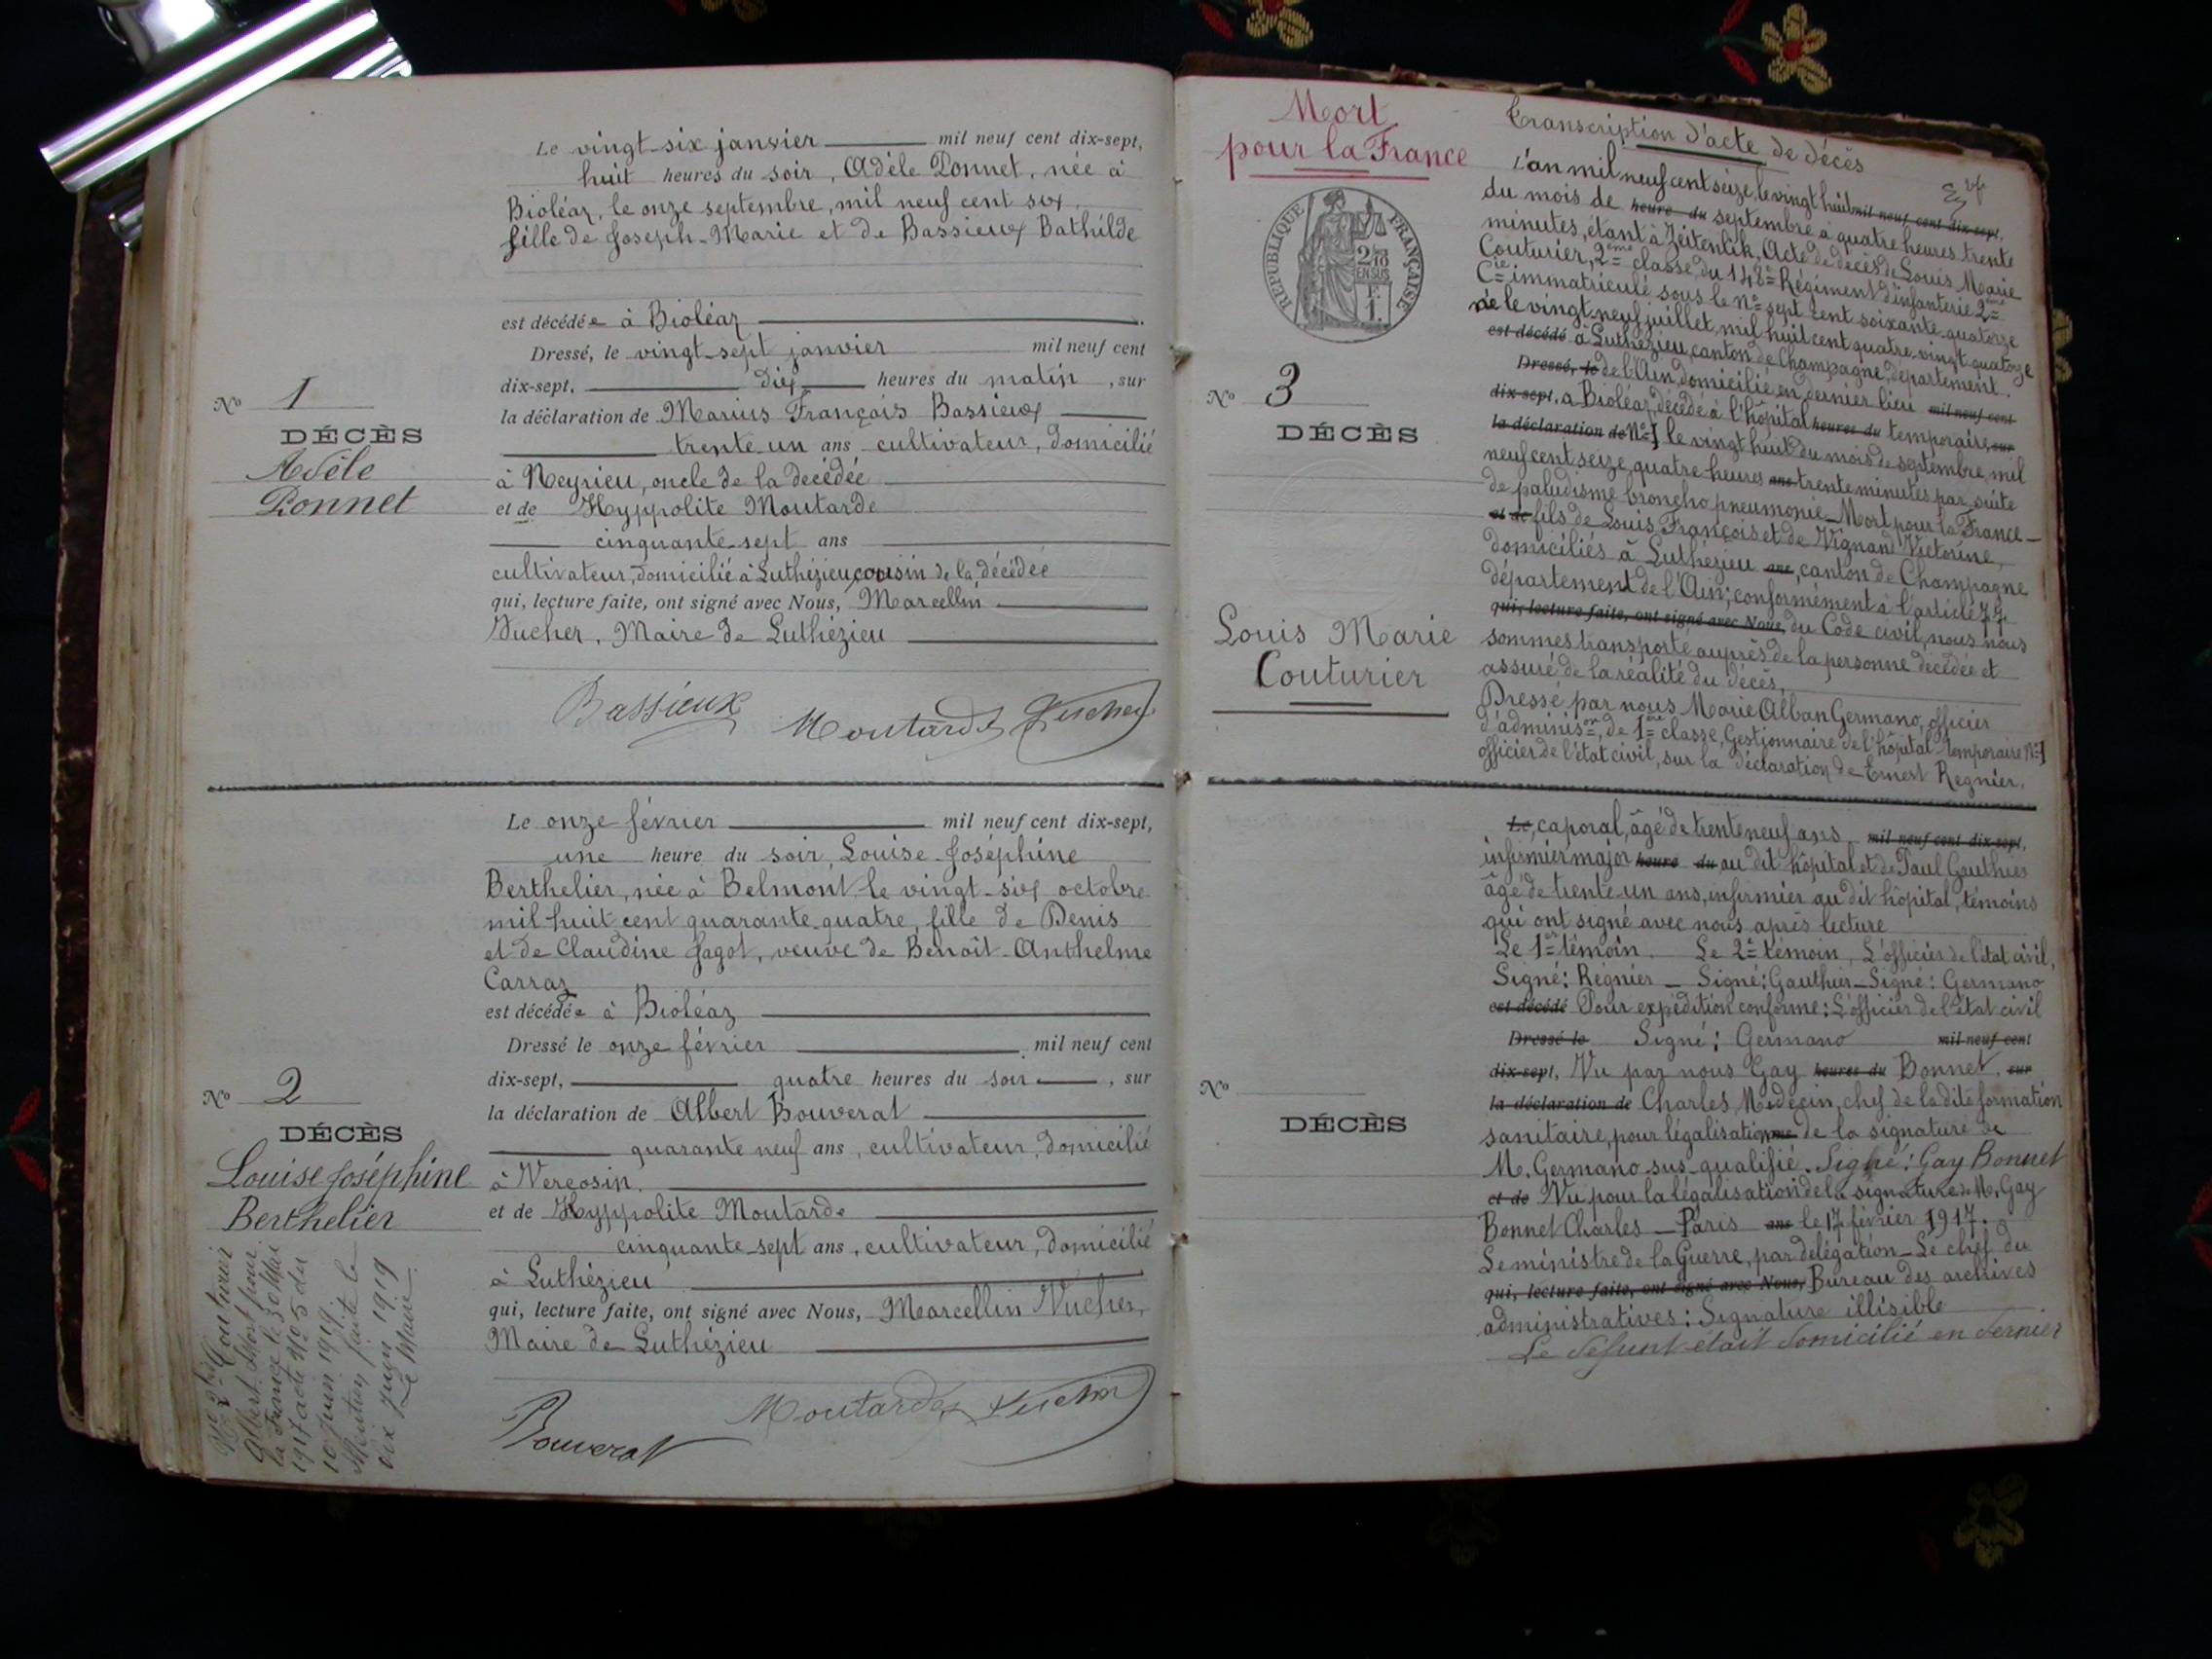 Le vingt-six janvier mil neuf cent dix-sept,
huit heures du soir, Adèle Ponnet, née à
Bioléaz, le onze septembre, mil neuf cent six,
fille de Joseph-Marie et de Bassieux Bathilde
est décédée à Bioléaz
Dressé, le vingt-sept janvier mil neuf cent
dix-sept, dix heures du matin, sur
la déclaration de Marius François Bassieux
trente-un ans cultivateur, domicilié
à Neyrieu, oncle de la décédée
et de Hyppolite Moutarde
cinquante-sept ans
cultivateur, domicilié à Luthézieu, cousin de la décédée
qui, lecture faite, ont signé avec Nous, Marcellin
Vucher, Maire de Luthézieu
Bassieux Moutarde Vucher
No 1
DÉCÈS
Adèle
Ponnet
Le onze février mil neuf cent dix-sept,
une heure du soir, Louise-Joséphine
Berthelier, née à Belmont le vingt-six octobre
mil huit cent quarante-quatre, fille de Denis
et de Claudine Jagot, veuve de Benoît-Anthelme
Carraz
est décédée à Bioléaz
Dressé le onze février mil neuf cent
dix-sept, quatre heures du soir, sur
la déclaration de Albert Bouverat
quarante neuf ans, cultivateur, domicilié
à Vercosin.
et de Hyppolite Moutarde
cinquante-sept ans, cultivateur, domicilié
à Luthézieu
qui, lecture faite, ont signé avec Nous, Marcellin Vucher,
Maire de Luthézieu
Bouverat Moutarde Vucher
No 2
DÉCÈS
Louise Joséphine
Berthelier
No 2 bis Couturier
Albert Mort pour
la France le 30 Mai
1917 acte No 5 du
10 Juin 1919.
Mention faite le
dix Juin 1919
Le Maire
Mort
pour la France
RÉPUBLIQUE FRANÇAISE
2/10
EN SUS
F.
1.
No 3
DÉCÈS
Louis Marie
Couturier
Transcription d'acte de décès
L'an mil neuf cent seize, le vingt huit mil neuf cent dix-sept,
du mois de heure du septembre a quatre heures trente
minutes, étant à Zeitenlik, Acte de décès de Louis Marie
Couturier, 2ème classe, du 148e Régiment d'infanterie 2ème
Cie immatriculé sous le no sept cent soixante-quatorze
né le vingt-neuf juillet, mil huit cent quatre-vingt quatorze
est décédé à Luthézieu, canton de Champagne, département.
Dressé, le de l'Ain, domicilié en dernier lieu mil neuf cent
dix-sept, à Bioléaz, décédé à l'hôpital heures du temporaire, sur
la déclaration de No 1 le vingt huit du mois de septembre, mil
neuf cent seize, quatre heures ans trente minutes par suite
de paludisme broncho pneumonie_Mort pour la France_
et de fils de Louis François et de Vignand Victorine,
domiciliés à Luthézieu ans, canton de Champagne
département de l'Ain; conformément à l'article 77
qui, lecture faite, ont signé avec Nous, du Code civil, nous nous
sommes transporté auprès de la personne décédée et
assuré de la réalité du décès,
Dressé par nous Marie Alban Germano, officier
d'adminison, de 1ère classe, Gestionnaire de l'hôpital temporaire No 1
officier de l'état civil, sur la déclaration de Ernest Regnier,
Le, caporal, âgé de trente neuf ans, mil neuf cent dix-sept,
infirmier major heure du au dit hôpital et de Paul Gauthier
âgé de trente-un ans, infirmier au dit hôpital, témoins
qui ont signé avec nous après lecture
Le 1er témoin. Le 2e témoin, L'officier de l'état civil,
Signé: Régnier _ Signé: Gauthier_Signé: Germano
est décédé Pour expédition conforme: L'officier de l'état civil
Dressé le Signé: Germano mil neuf cent
dix-sept, Vu par nous Gay heures du Bonnet, sur
la déclaration de Charles Médecin, chef de la dite formation
sanitaire, pour légalisation ans de la signature de
M. Germano sus-qualifié. Signé: Gay Bonnet
et de Vu pour la légalisation de la signature de M. Gay
Bonnet Charles_Paris ans le 17 février 1917.
Le ministre de la Guerre, par délégation_Le chef du
qui, lecture faite, ont signé avec Nous, Bureau des archives
administratives: Signature illisible
Le défunt était domicilié en dernier
No
DÉCÈS